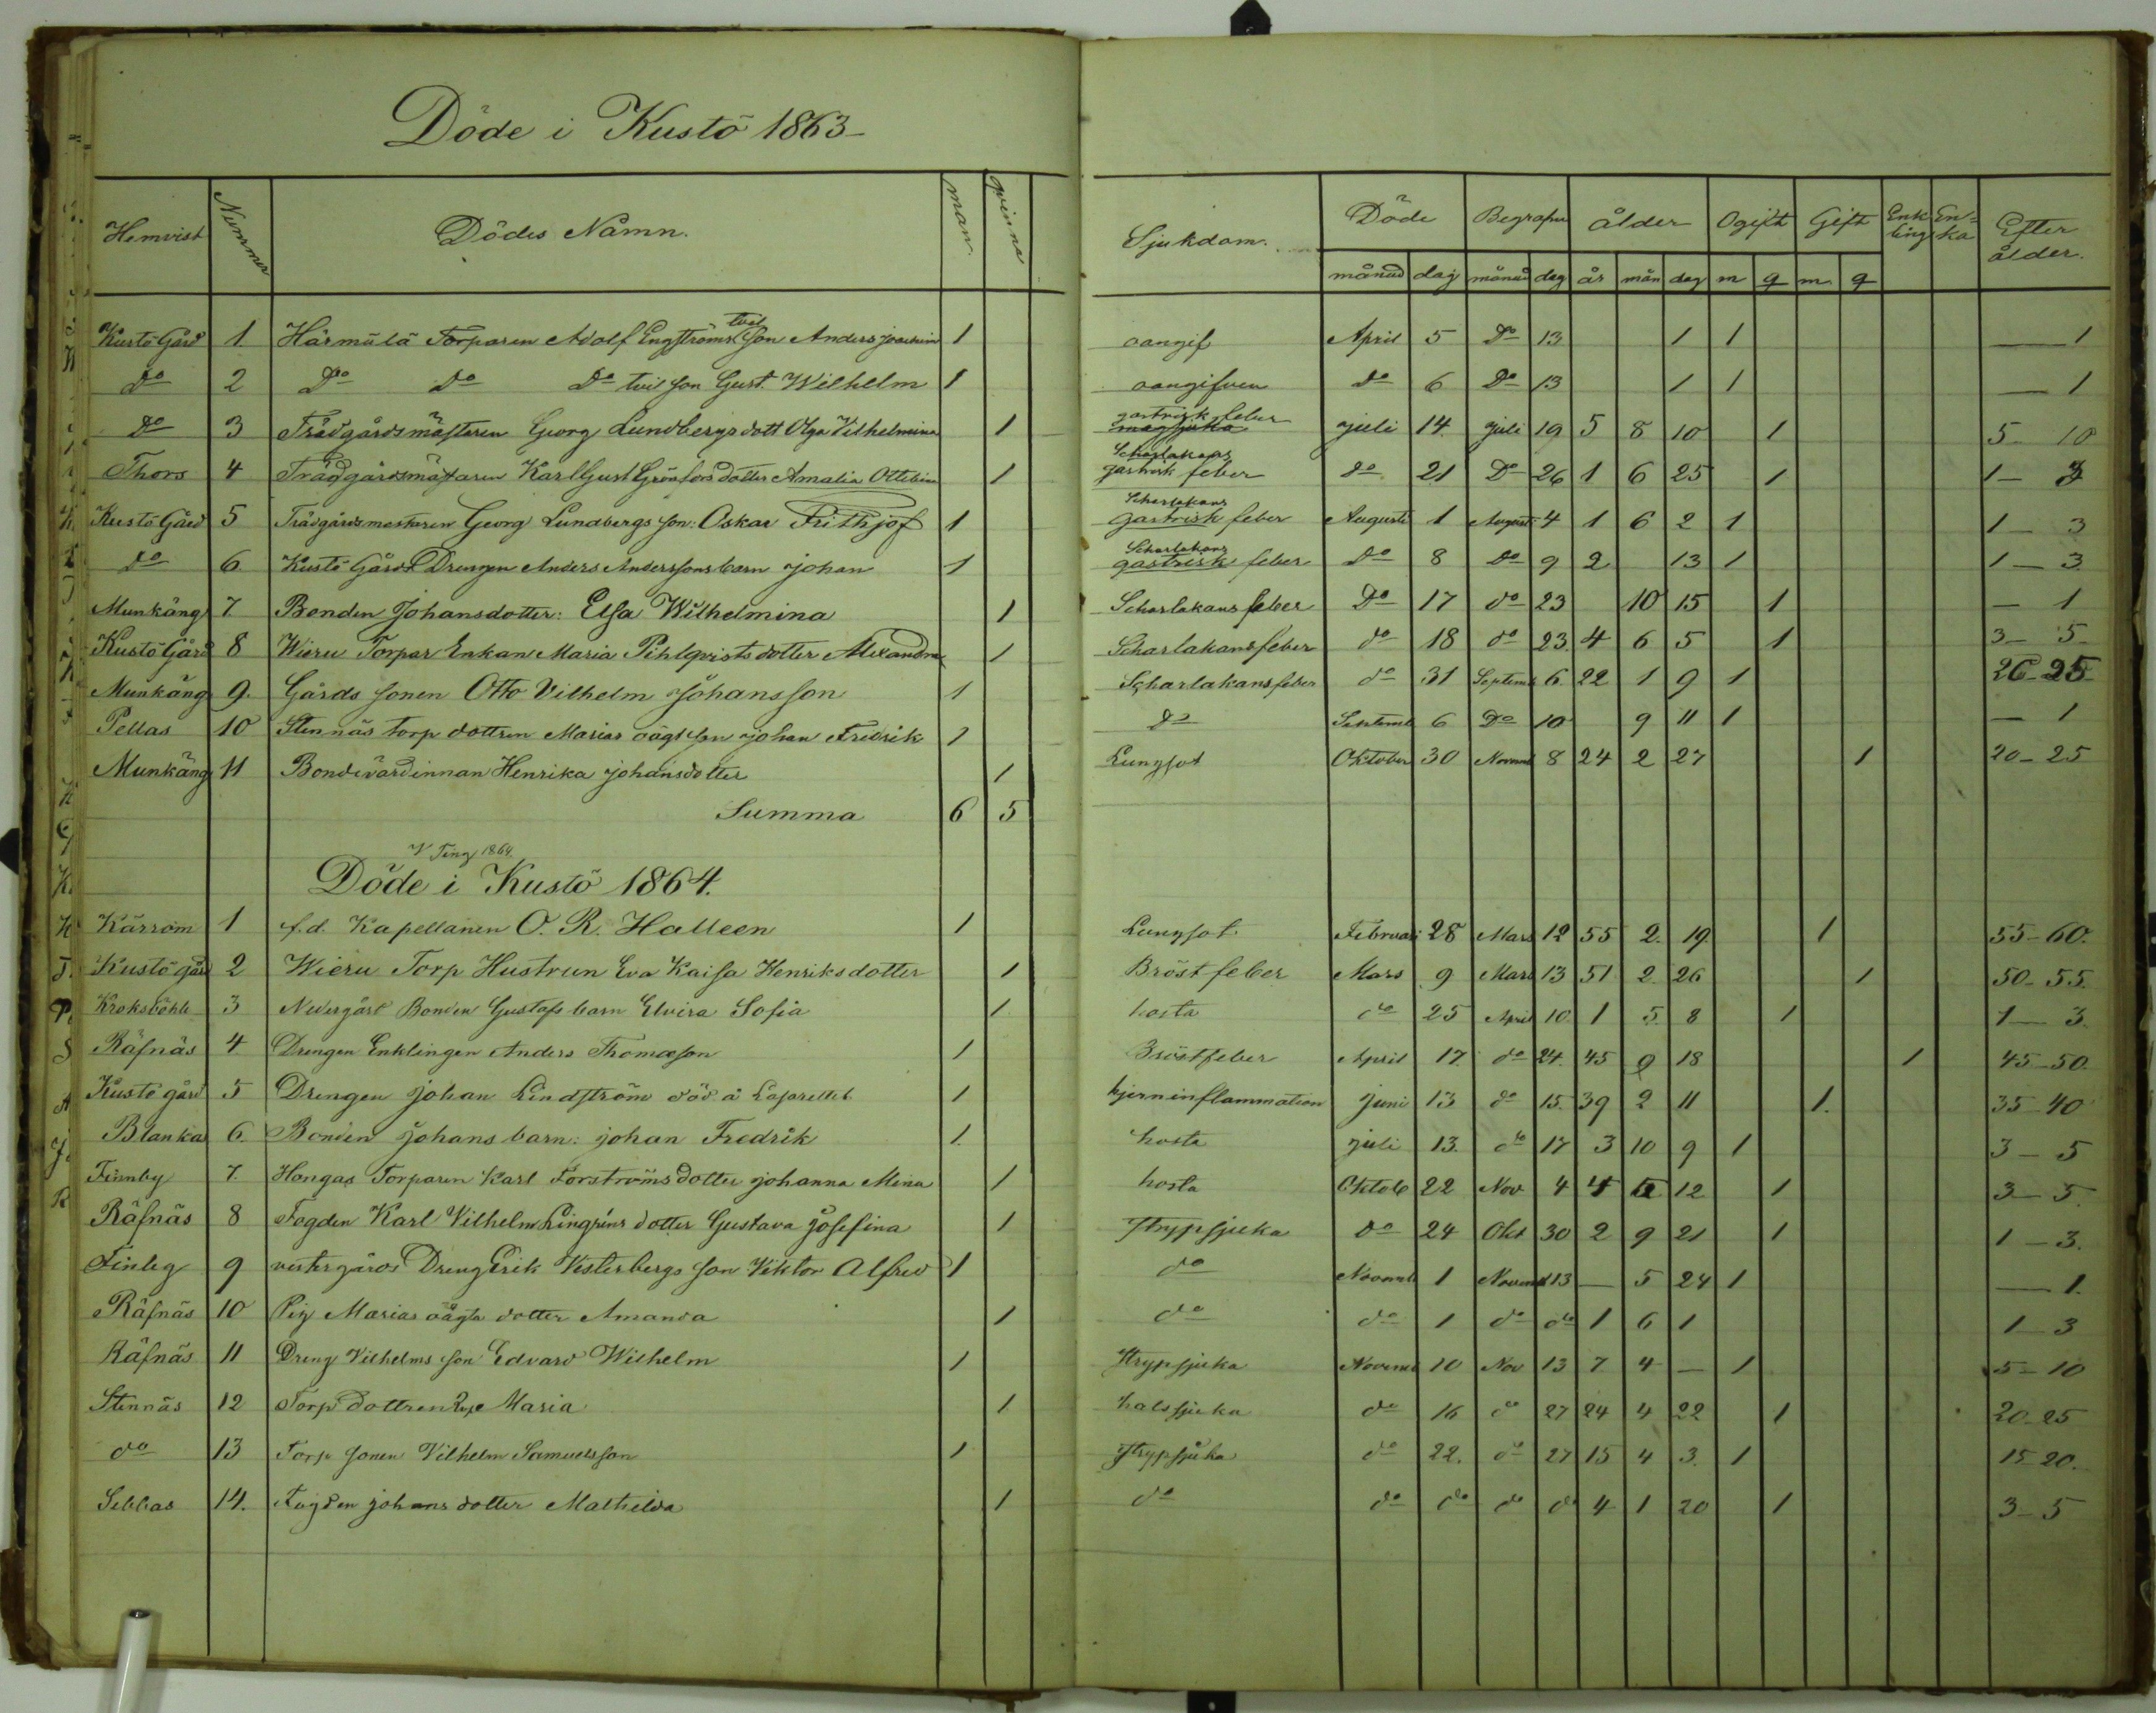 Döde i Kustö 1863
Hemvist Nummer Dödes Namn. man qvinna Sjukdom. Döde Begrafne ålder Ogift Gift Enkling Enka Efter ålder.
månad dag månad dag år mån dag m q m. q
Kustö Gård 1 Härmälä Torparen Adolf Engströms tvil son Anders joachim 1 oangif April 5 Do 13 1 1 — 1
Do 2 Do Do Do tvil son Gust. Wilhelm 1 oangifven do 6 Do 13 1 1 — 1
Do 3 Trädgårdsmästaren Georg Lundbergs dott Olga Vilhelmina 1 gastrisk feber magsjuka juli 14. juli 19 5 8 10 1 5 10
Thors 4 Trädgårdsmästaren Karl Gust Grönfors dotter Amalia Ottilina 1 Scharlakans gastrisk feber do 21 Do 26 1 6 25 1 1 —
Kustö Gård 5 Trädgårdsmastaren Georg Lundbergs son: Oskar Frithjof 1 Scharlakans gastrisk feber Augusti 1 August 4 1 6 2 1 1 — 3
do 6 Kustö Gårds Drengen Anders Anderssons barn johan 1 Scharlakans gastrisk feber do 8 do 9 2 13 1 1 — 3
Munkäng 7 Bonden Johansdotter: Elsa Wilhelmina 1 Scharlakans feber Do 17 do 23 10 15 1 — 1
Kustö Gård 8 Wieru Torpar Enkan Maria Pihlqvists dotter Alexandra 1 Scharlakansfeber do 18 do 23. 4 6 5 1 3 — 5
Munkäng 9. Gårds sonen Otto Vilhelm Johansson 1 Scharlakansfeber do 31 Septemb 6. 22 1 9 1 20-25
Pellas 10 Stennäs torp dottren Marias oägt son johan Fredrik 1 do Septemb 6 Do 10 9 11 1 — 1
Munkäng 11 Bondevärdinnan Henrika johansdotter 1 Lungsot Oktober 30 Novemb 8 24 2 27 1 20-25
Summa 6 5
V Ting 1864.
Döde i Kustö 1864.
Kärsöm 1 f.d. Kapellanen O. R. Halleen 1 Lungsot Februari 28 Mars 12 55 2. 19. 1 55-60.
Kustö gård 2 Wieru Torp Hustrun Eva Kaisa Henriksdotter 1 Bröst feber Mars 9 Mars 13 51 2 26 1 50-55.
Kroksböhle 3 Nedergård Bonden Gustafs barn Elvira Sofia 1 hosta do 25 April 10. 1 5 8 1 1 — 3.
Räfnäs 4 Drengen Enklingen Anders Thomasson 1 Bröstfeber April 17. do 24. 45 9 18 1 45-50.
Kustö gård 5 Drengen Johan Lindström död å Lasarettet 1 hjerninflammation juni 13 do 15. 39 2 11 1. 35-40
Blanka 6. Bonden Johans barn: johan Fredrik 1. hosta juli 13. do 17 3 10 9 1 3 — 5
Finnby 7. Hongas Torparen Karl Forströms dotter johanna Mina 1 hosta Oktob 22 Nov 4 4 12 1 3 — 5.
Räfnäs 8 Fogden Karl Vilhelm dotter Gustava Josefina 1 Strypsjuka do 24 Okt 30 2 9 21 1 1 — 3.
9 vestergårds Dreng Erik Vesterbergs son Viktor Alfred 1 do Novemb 1 Novemb 13 — 5 24 1 — 1.
Räfnäs 10 Pig Marias oägta dotter Amanda 1 do do 1 do do 1 6 1 1 — 3
Räfnäs 11 Dreng Vilhelms son Edvard Wilhelm 1 Strypsjuka Novemb 10 Nov 13 7 4 — 1 5 — 10
Stennäs 12 Torp dottren Maria 1 halssjuka do 16 do 27 24 4 22 1 20-25
do 13 Torp sonen Vilhelm Samuelsson 1 Strypsjuka do 22. do 27 15 4 3. 1 15-20.
Sebbas 14. Fogden johans dotter Mathilda 1 do do do do do 4 1 20 1 3-5